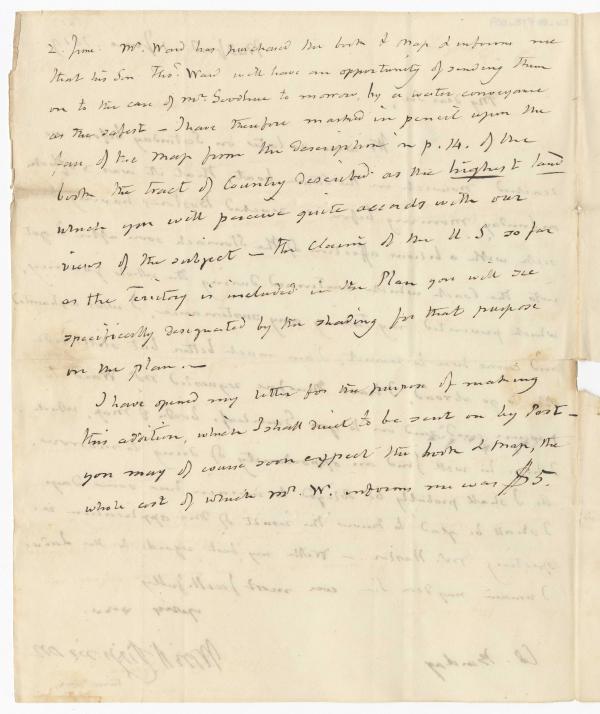 2. June. Mr. Ward has purchased the book & map & informs me
that his Son Thos. Ward will have an opportunity of sending them
on to the care of Mr. Goodhue to morrow by a water conveyance
as the safest – I have therefore marked in pencil upon the
face of the map from the description in p. 14. of the
book the tract of Country described as the highest land
which you will perceive quite accords with our
views of the subject – the claim of the U. S. so far
as the Territory is included in the Plan you will see
specifically designated by the shading for that purpose
on the plan. –
I have opened my letter for the purpose of making
this addition, which I shall direct to be sent on by Post –
you may of course soon expect the book & map, the
whole cost of which Mr. W. informs me was $5.